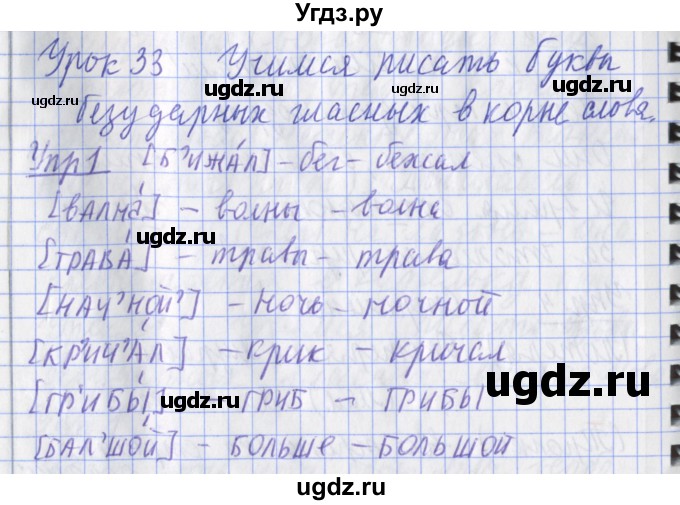 Угдз.ру
Урок 33 Учимся писать буквы
ugdz.ru ugdz.ru ugdz.ru
безударных гласных в корне слова.
Упр 1 [Б'ИЖА́Л] – бег – бежал
[ВАЛНА́] – волны – волна
ugdz.ru ugdz.ru
[ТРАВА́] – травы – трава
[НАЧ'НОЙ'] – ночь – ночной
ugdz.ru
[КР'ИЧ'А́Л] – крик – кричал
[ГР'ИБЫ́] – ГРИБ – ГРИБЫ
ugdz.ru ugdz.ru
[БАЛ'ШО́Й] – БОЛЬШЕ – БОЛЬШОЙ
ugdz.ru